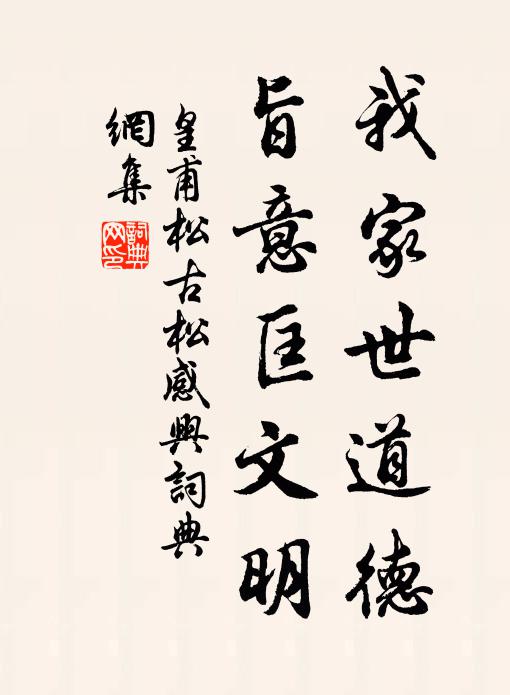 我家世道德
旨意匡文明
皇甫松古松感興詞典
網集
詞典
网印